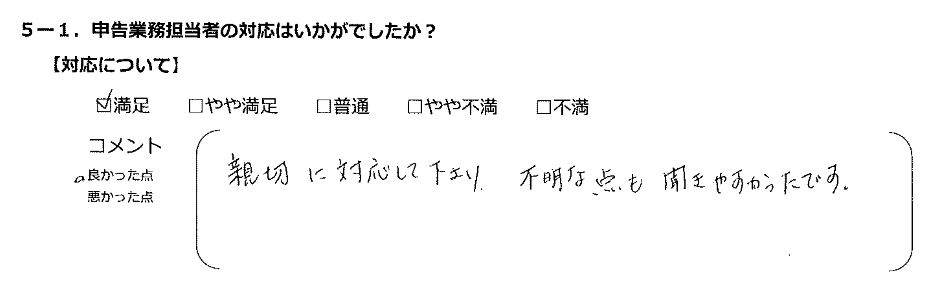 5－1．申告業務担当者の対応はいかがでしたか？
【対応について】
☑満足　□やや満足　□普通　□やや不満　□不満
コメント
良かった点
悪かった点
親切に対応して下さり、不明な点も聞きやすかったです。